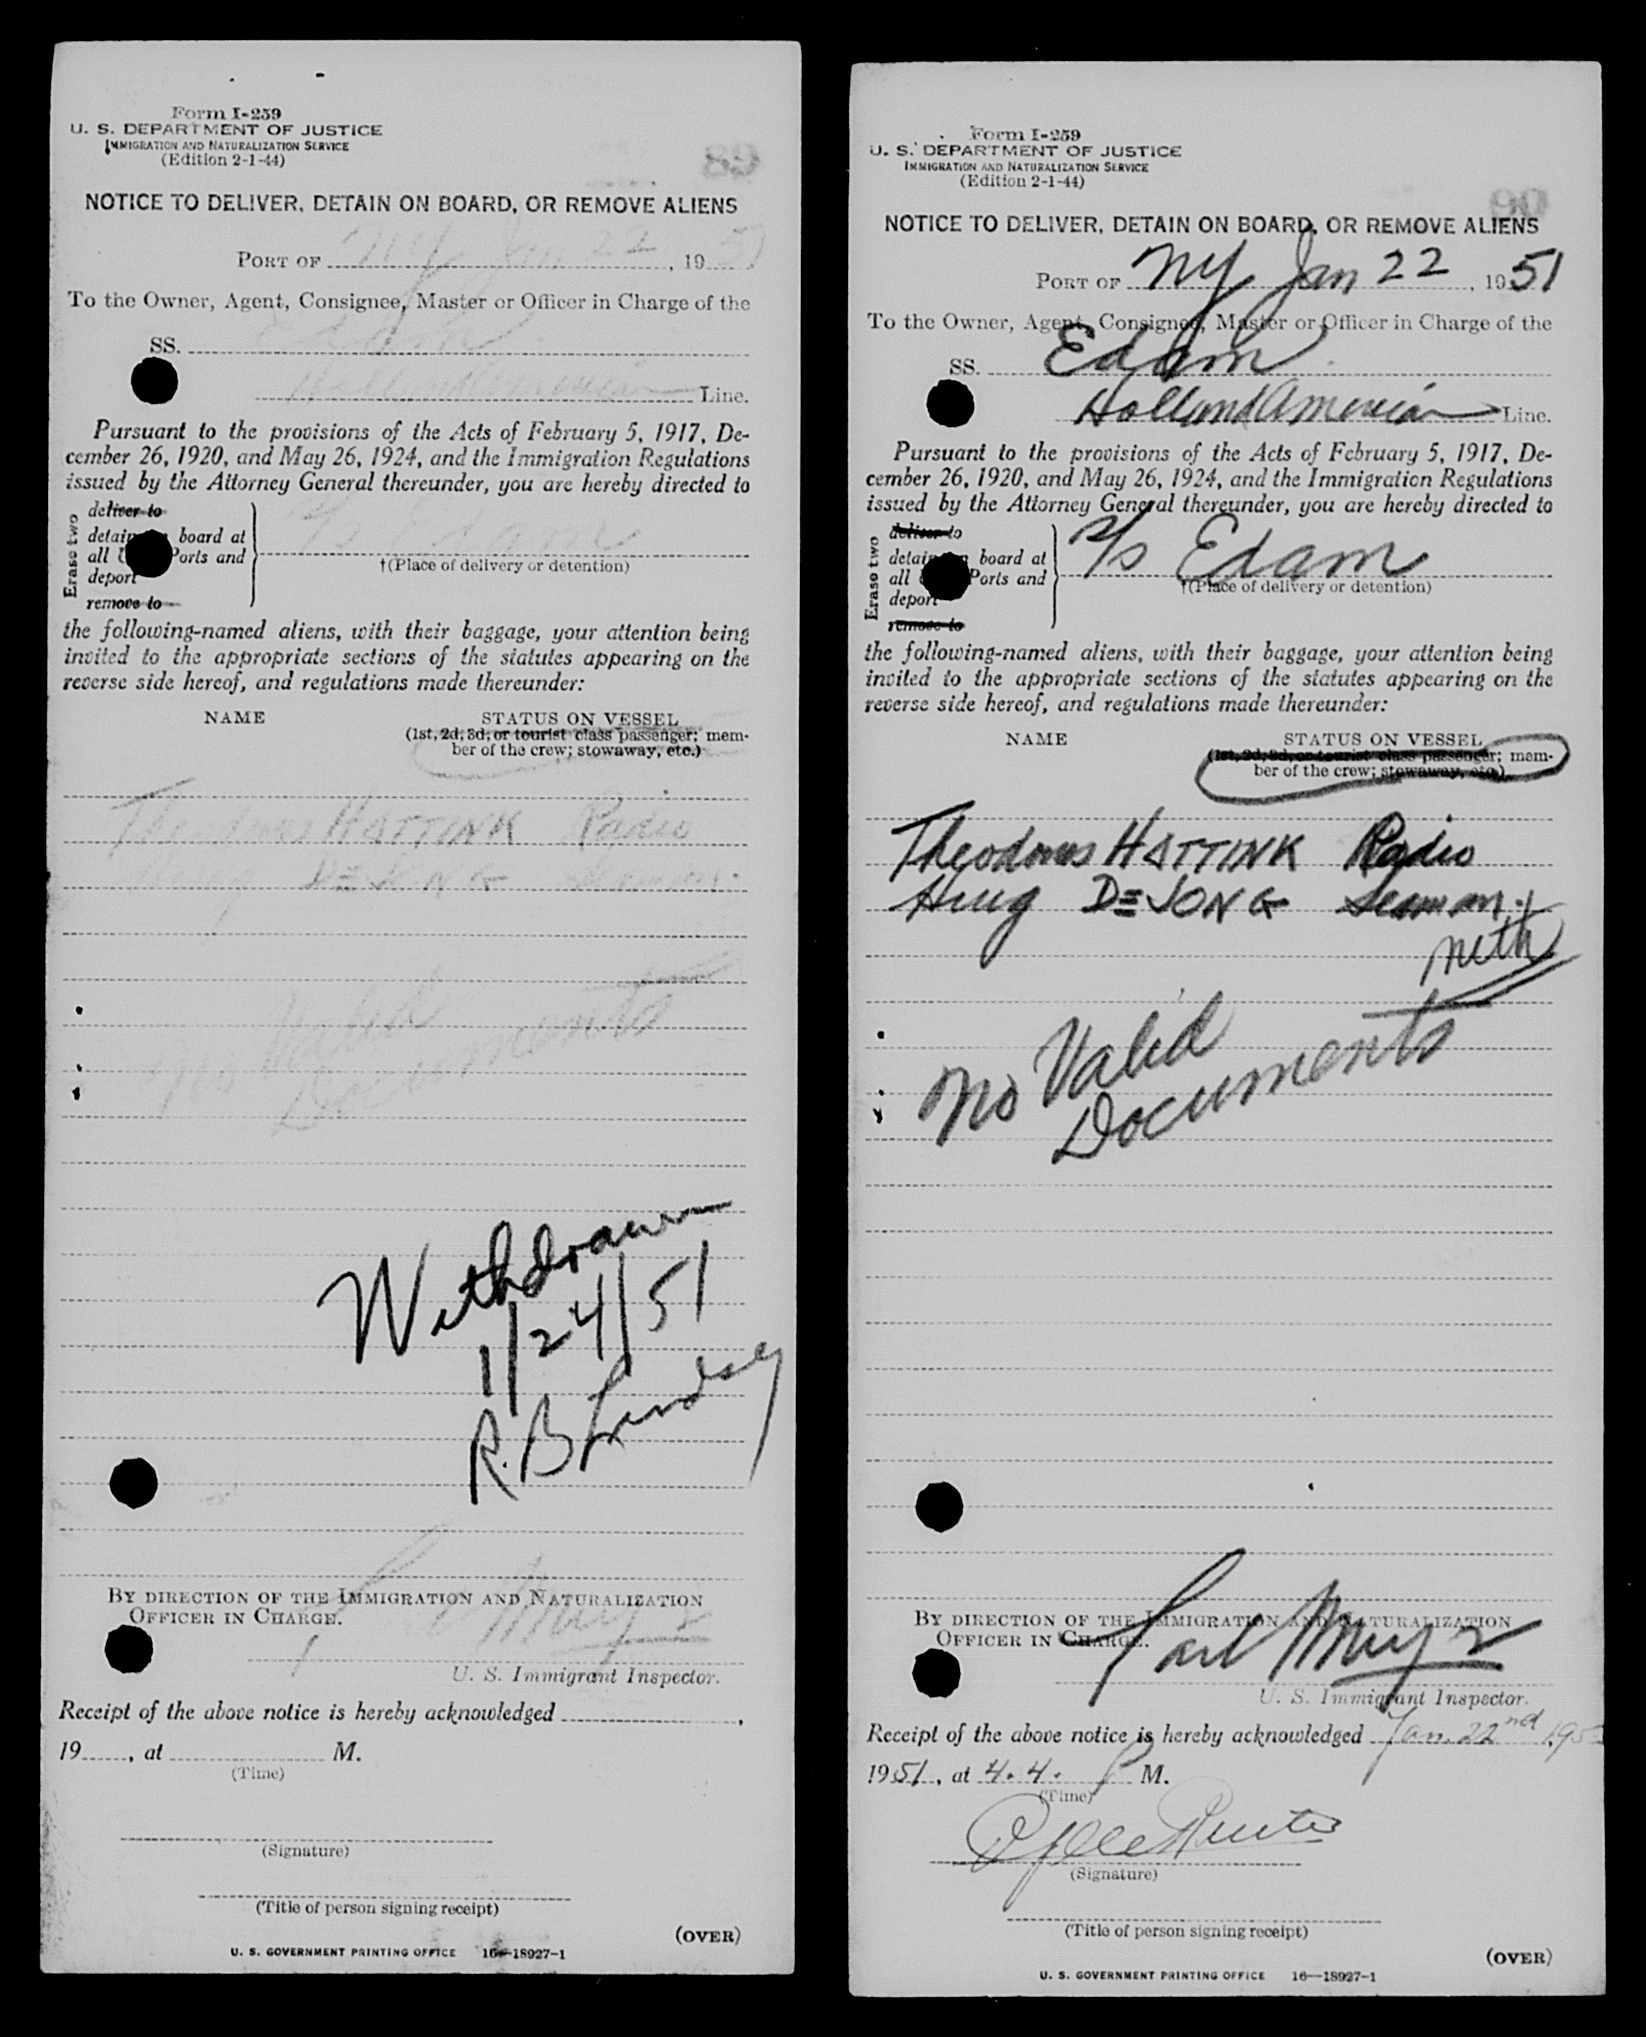 Form I-259
U. S. DEPARTMENT OF JUSTICE
IMMIGRATION AND NATURALIZATION SERVICE
(Edition 2-1-44)
NOTICE TO DELIVER, DETAIN ON BOARD, OR REMOVE ALIENS
PORT OF NY Jan 22, 1951
To the Owner, Agent, Consignee, Master or Officer in Charge of the
SS. Edam
Holland American Line.
Pursuant to the provisions of the Acts of February 5, 1917, De-
cember 26, 1920, and May 26, 1924, and the Immigration Regulations
issued by the Attorney General thereunder, you are hereby directed to
Erase two
deliver to
detain board at
all Ports and
deport
remove to
S/S Edam
†(Place of delivery or detention)
the following-named aliens, with their baggage, your attention being
invited to the appropriate sections of the statutes appearing on the
reverse side hereof, and regulations made thereunder:
NAME STATUS ON VESSEL
(1st, 2d, 3d, or tourist class passenger; mem-
ber of the crew; stowaway, etc.)
Theodorus HATTINK Radio
DEJONG Seaman.
No Valid
Documents
Withdrawn
1/24/51
R. B Lindsey
BY DIRECTION OF THE IMMIGRATION AND NATURALIZATION
OFFICER IN CHARGE.
U. S. Immigrant Inspector.
Receipt of the above notice is hereby acknowledged ,
19 , at M.
(Time)
(Signature)
(Title of person signing receipt)
(OVER)
U. S. GOVERNMENT PRINTING OFFICE 16—18927-1
Form I-259
U. S. DEPARTMENT OF JUSTICE
IMMIGRATION AND NATURALIZATION SERVICE
(Edition 2-1-44)
NOTICE TO DELIVER, DETAIN ON BOARD, OR REMOVE ALIENS
PORT OF NY Jan 22, 1951
To the Owner, Agent, Consignee, Master or Officer in Charge of the
SS. Edam
Holland American Line.
Pursuant to the provisions of the Acts of February 5, 1917, De-
cember 26, 1920, and May 26, 1924, and the Immigration Regulations
issued by the Attorney General thereunder, you are hereby directed to
Erase two
deliver to
detain board at
all Ports and
deport
remove to
S/S Edam
†(Place of delivery or detention)
the following-named aliens, with their baggage, your attention being
invited to the appropriate sections of the statutes appearing on the
reverse side hereof, and regulations made thereunder:
NAME STATUS ON VESSEL
(1st, 2d, 3d, or tourist class passenger; mem-
ber of the crew; stowaway, etc.)
Theodorus HATTINK Radio
Huig DEJONG Seaman.
Neth
No Valid
Documents
BY DIRECTION OF THE IMMIGRATION AND NATURALIZATION
OFFICER IN CHARGE.
U. S. Immigrant Inspector.
Receipt of the above notice is hereby acknowledged Jan. 22nd, 195
1951, at 4.4. P M.
(Time)
(Signature)
(Title of person signing receipt)
(OVER)
U. S. GOVERNMENT PRINTING OFFICE 16—18927-1